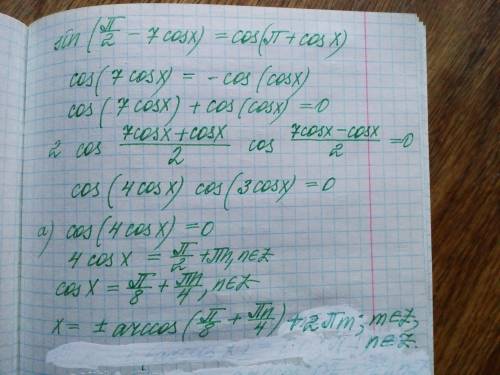 sin(π/2 - 7cosx) = cos(π + cosx)
cos(7cosx) = -cos(cosx)
cos(7cosx) + cos(cosx) = 0
2 cos (7cosx + cosx)/2 cos (7cosx - cosx)/2 = 0
cos(4cosx) cos(3cosx) = 0
а) cos(4cosx) = 0
4cosx = π/2 + πn, n∈Z
cosx = π/8 + πn/4, n∈Z
x = ± arccos(π/8 + πn/4) + 2πm; m∈Z,
n∈Z.